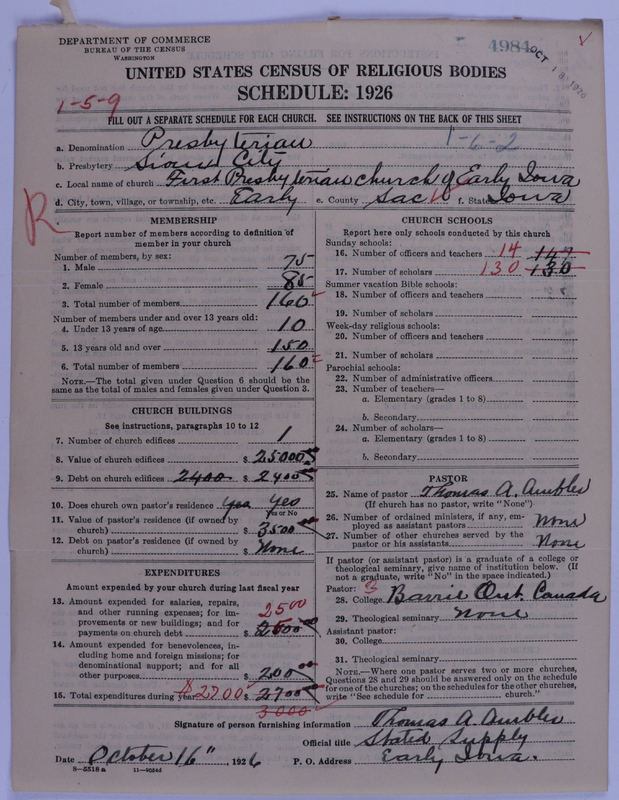 DEPARTMENT OF COMMERCE
BUREAU OF THE CENSUS
WASHINGTON
4984
OCT 18 1926
UNITED STATES CENSUS OF RELIGIOUS BODIES
SCHEDULE: 1926
1-5-9
FILL OUT A SEPARATE SCHEDULE FOR EACH CHURCH. SEE INSTRUCTIONS ON THE BACK OF THIS SHEET
a. Denomination Presbyterian 1-6-2
b. Presbytery Sioux City
c. Local name of church First Presbyterian church of Early Iowa
d. City, town, village, or township, etc. Early e. County Sac f. State Iowa
R
MEMBERSHIP
Report number of members according to definition of member in your church
Number of members, by sex:
1. Male 75
2. Female 85
3. Total number of members 160
Number of members under and over 13 years old:
4. Under 13 years of age 10
5. 13 years old and over 150
6. Total number of members 160
NOTE.—The total given under Question 6 should be the
same as the total of males and females given under Question 3.
CHURCH BUILDINGS
See instructions, paragraphs 10 to 12
7. Number of church edifices 1
8. Value of church edifices $ 25000
9. Debt on church edifices 2400 $ 2400
10. Does church own pastor's residence Yes Yes
Yes or No
11. Value of pastor's residence (if owned by
church) $ 3500
12. Debt on pastor's residence (if owned by
church) $ None
EXPENDITURES
Amount expended by your church during last fiscal year
13. Amount expended for salaries, repairs,
and other running expenses; for im-
provements or new buildings; and for
payments on church debt $ 2500
14. Amount expended for benevolences, in-
cluding home and foreign missions; for
denominational support; and for all
other purposes $ 200
15. Total expenditures during year $2700 $ 2700
3000
CHURCH SCHOOLS
Report here only schools conducted by this church
Sunday schools:
16. Number of officers and teachers 14 147
17. Number of scholars 130 130
Summer vacation Bible schools:
18. Number of officers and teachers
19. Number of scholars
Week-day religious schools:
20. Number of officers and teachers
21. Number of scholars
Parochial schools:
22. Number of administrative officers
23. Number of teachers—
a. Elementary (grades 1 to 8)
b. Secondary
24. Number of scholars—
a. Elementary (grades 1 to 8)
b. Secondary
PASTOR
25. Name of pastor Thomas A. Ambler
(If church has no pastor, write "None")
26. Number of ordained ministers, if any, em-
ployed as assistant pastors None
27. Number of other churches served by the
pastor or his assistants None
If pastor (or assistant pastor) is a graduate of a college or
theological seminary, give name of institution below. (If
not a graduate, write "No" in the space indicated.)
Pastor: 3
28. College Barrie Ont. Canada
29. Theological seminary None
Assistant pastor:
30. College
31. Theological seminary
NOTE.—Where one pastor serves two or more churches,
Questions 28 and 29 should be answered only on the schedule
for one of the churches; on the schedules for the other churches,
write "See schedule for church."
Signature of person furnishing information Thomas A. Ambler
Official title Stated Supply
Date October 16", 1926 P. O. Address Early Iowa.
8-5518 a